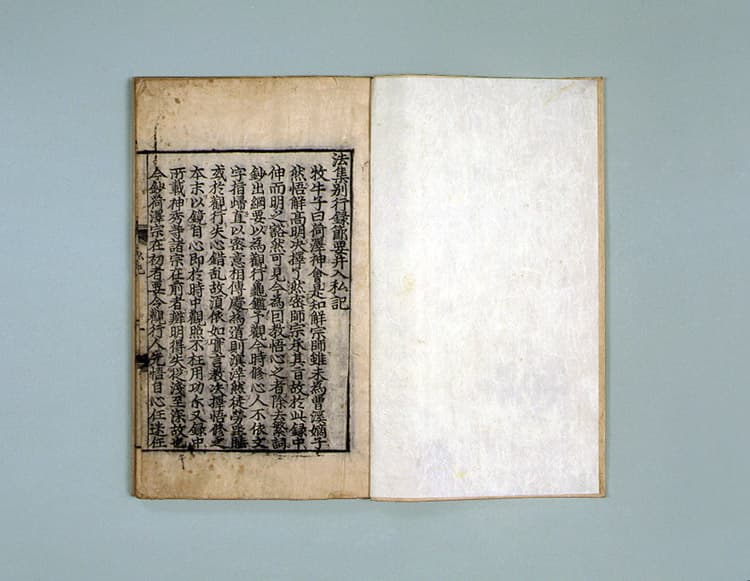 法集別行錄節要并入私記
牧牛子曰荷澤神會是知解宗師雖未為曹溪嫡子
然悟解高明決擇了然密師宗承其旨故於此錄中
伸而明之豁然可見今為因教悟心之者除去繁詞
鈔出綱要以為觀行龜鑑予觀今時修心人不依文
字指歸直以密意相傳處為道則溟涬然徒勞坐睡
或於觀行失心錯亂故須依如實言教決擇悟修之
本末以鏡自心即於時中觀照不枉用功尒又錄中
所載神秀等諸宗在前者辨明得失從淺至深故也
今鈔荷澤宗在初者要令觀行人先悟自心任迷任